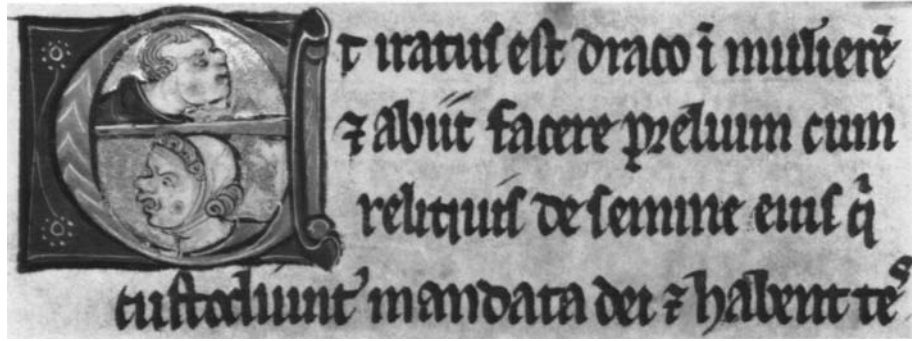 Et iratus est draco ī mulierē
⁊ abiit facere prelium cum
reliquis de semine eius q̄
custodiunt mandata dei ⁊ habent tes